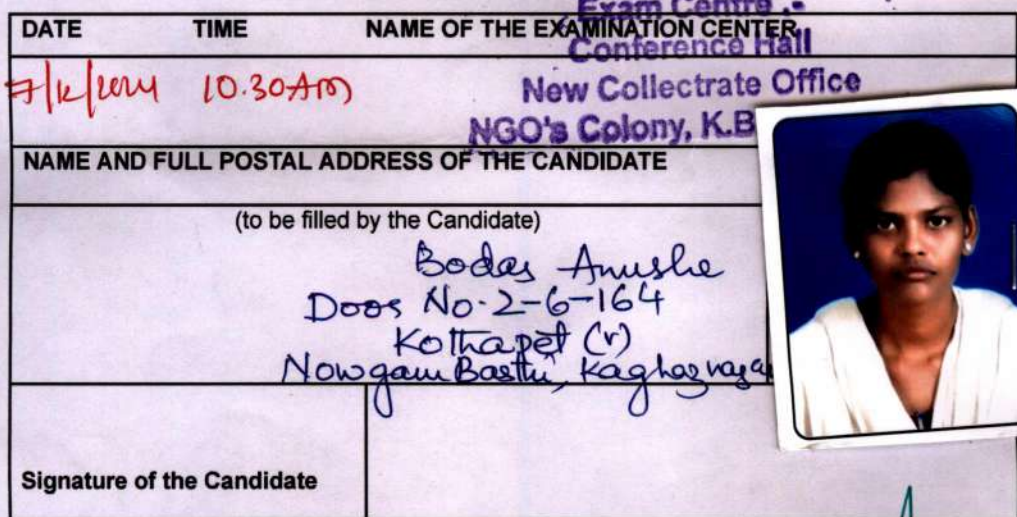 Exam Centre :-
DATE TIME NAME OF THE EXAMINATION CENTER
Conference Hall
10.30AM New Collectrate Office
NGO's Colony, K.B
NAME AND FULL POSTAL ADDRESS OF THE CANDIDATE
(to be filled by the Candidate)
Bodas Anushe
Doos No.2-6-164
Kothapet (v)
Nowgam Basthi, Kaghaznagar
Signature of the Candidate